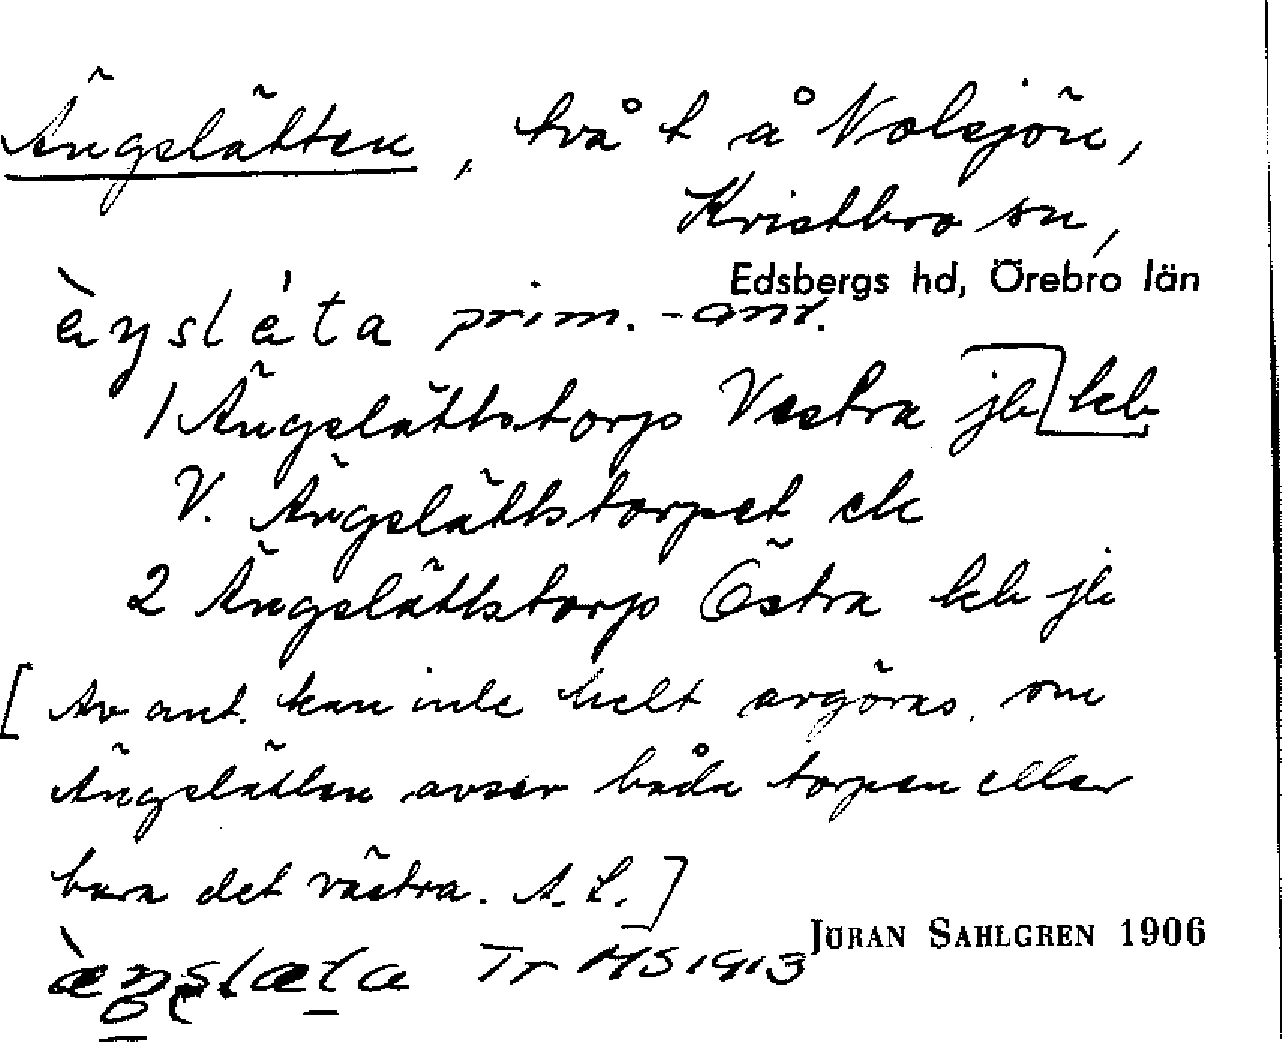 Ängslätten, två t å Nolsjön,
Kvistbro sn,
Edsbergs hd, Örebro län
prim.-anr.
1 Ängslättstorp Västra jb kb
V. Ängslättstorpet ek
2 Ängslättstorp Östra kb jb
[Av ant. kan inte helt avgöras, om
Ängslätten avser båda torpen eller
bara det västra. A. L.]
JÖRAN SAHLGREN 1906
Tr MS 1913